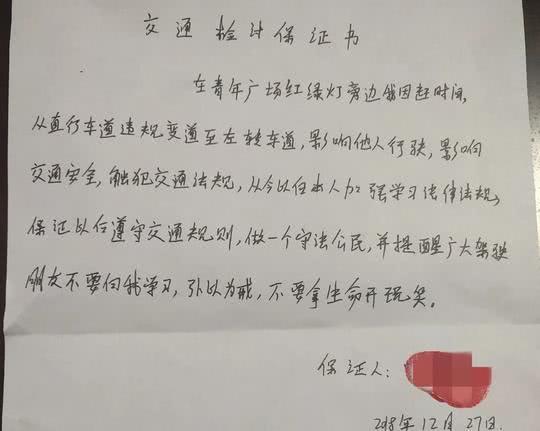 交通检讨保证书
在青年广场红绿灯旁边我因赶时间,
从直行车道违规变道至左转车道,影响他人行驶,影响
交通安全,触犯交通法规,从今以后本人加强学习法律法规,
保证以后遵守交通规则,做一个守法公民,并提醒广大驾驶
朋友不要向我学习,引以为戒,不要拿生命开玩笑。
保证人:
2018年12月27日.